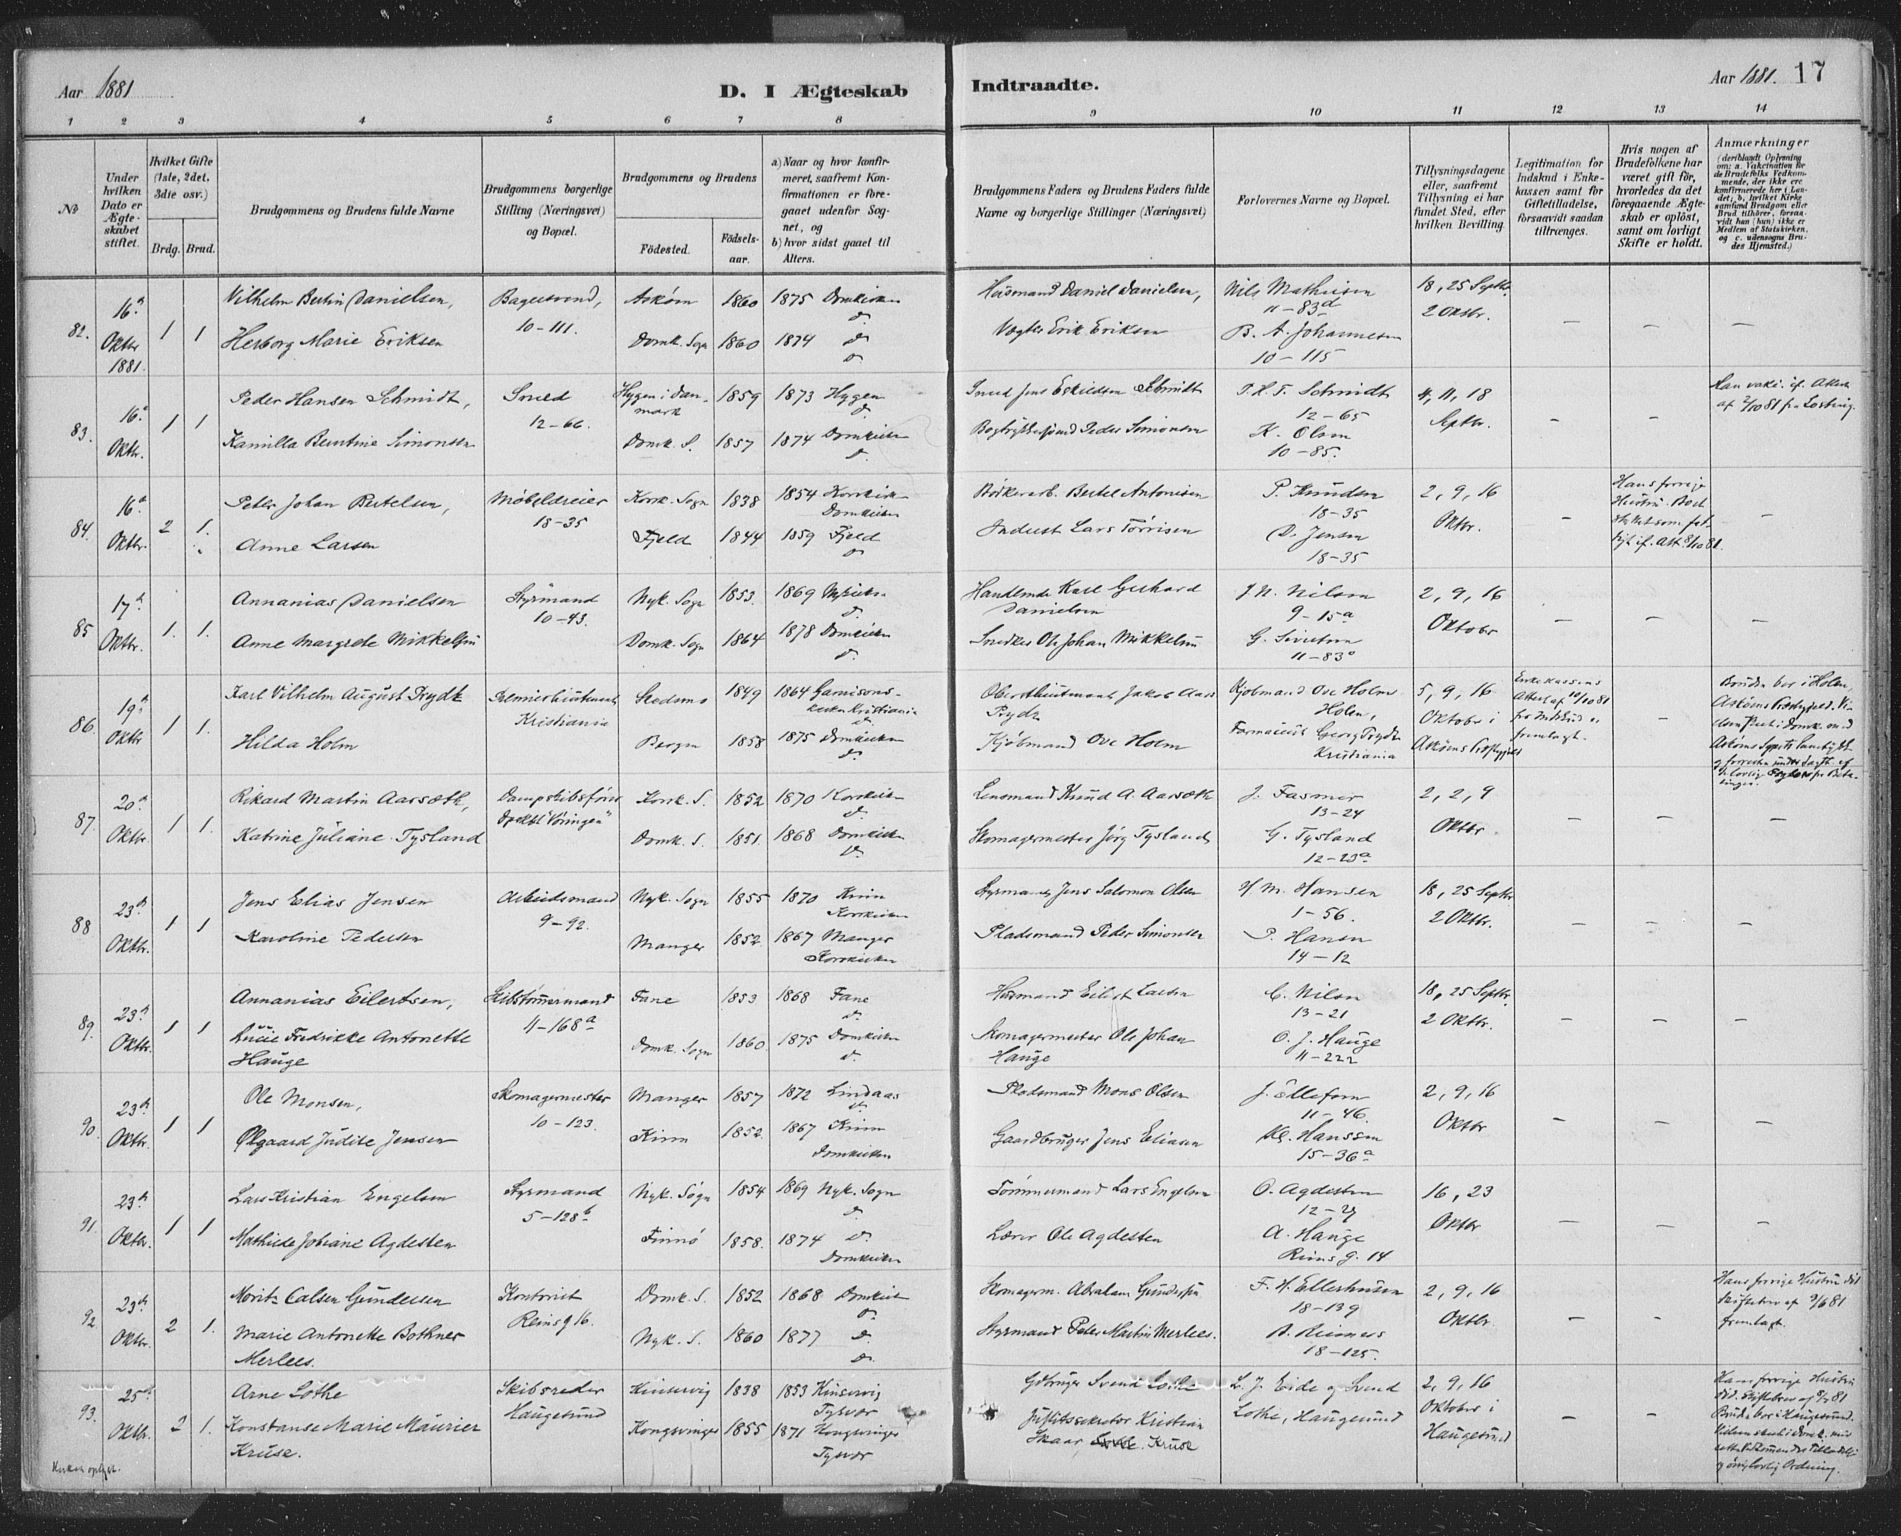 Aar 1881
D. I Ægteskab
Indtraadte.
Aar 1881. 17
1 2 3 4 5 6 7 8 9 10 11 12 13 14
No
Under hvilken Dato er Ægteskabet stiftet.
Hvilket Gifte (1ste, 2det, 3die osv.)
Brdg. Brud.
Brudgommens og Brudens fulde Navne
Brudgommens borgerlige Stilling (Næringsvei) og Bopæl.
Brudgommens og Brudens
Fødested.
Fødselsaar.
a) Naar og hvor konfirmeret, saafremt Konfirmationen er foregaaet udenfor Sognet, og
b) hvor sidst gaaet til Alters.
Brudgommens Faders og Brudens Faders fulde Navne og borgerlige Stillinger (Næringsvei)
Forlovernes Navne og Bopæl.
Tillysningsdagene eller, saafremt Tillysning ei har fundet Sted, efter hvilken Bevilling.
Legitimation for Indskud i Enkekassen samt for Giftetilladelse, forsaavidt saadan tiltrænges.
Hvis nogen af Brudefolkene har været gift før, hvorledes da det foregaaende Ægteskab er opløst, samt om lovligt Skifte er holdt.
Anmærkninger
(deriblandt Oplysning om: a. Vakcination for de Brudefolks Vedkommende, der ikke ere konfirmerede her i Landet; b. hvilket Kirkesamfund Brudgom eller Brud tilhører, forsaavidt han (hun) ikke er Medlem af Statskirken, og c. udensogns Brudes Hjemsted.)
82. 16de Oktbr. 1881. 1 1
Vilhelm Bertin Danielsen, Bagersvend, 10–111. Askøen 1860 1875 Domkirken do
Husmand Daniel Danielsen, Nils Mathisen 11–83d 18, 25 Septbr. 2 Oktbr. – – –
Herborg Marie Eriksen Domk. Sogn 1860 1874 do do
Vægter Erik Eriksen B. A. Johannesen 10–115
83. 16de Oktbr. 1 1
Peder Hansen Schmidt, Smed 12–66. Hygen i Danmark 1859 1873 Hygen do
Smed Jens Eskildsen Schmidt T. H. F. Schmidt 12–65 4, 11, 18 Septbr. – –
Kamilla Berntine Simonsen Domk. S. 1857 1874 Domkirken do
Bogtrykkersvend Peder Simonsen K. Olsen 10–85.
84. 16de Oktbr. 2 1.
Peter Johan Bertelsen, Møbelpreier 18–35 Korsk. Sogn 1838 1854 Korskirken Domkirken
Bødkerarb. Bertel Antonisen P. Knudsen 18–35 2, 9, 16 Oktbr. – –
Anne Larsen Fjeld 1844 1859 Fjeld do
Inderst Lars Tørrisen D. Jensen 18–35
85 17de Oktbr. 1. 1.
Annanias Danielsen Styrmand 10–43. Nyk. Sogn 1853. 1869 Nykirken do
Handlende Karl Gerhard Danielsen J. N. Nilsen 9–15a 2, 9, 16 Oktober – – –
Anne Margrete Mikkelsen Domk. Sogn 1864 1878 Domkirken do
Snedker Ole Johan Mikkelsen G. Sivertsen 11–83
86. 19de Oktbr 1 1.
Karl Vilhelm August Prydz Premierlieutenant Kristiania Skedsmo 1849 1864 Garnisonskirken Kristiania do
Oberstlieutenant Jakob Aars Prydz Kjøbmand Ove Holm Holen, 5, 9, 16 Oktober i Askøens Præstegjeld
Hilda Holm Bergen 1858 1875 Domkirken do
Kjøbmand Ove Holm Farmaceut Georg Prydz Kristiania
Enkekassens Attest af 10/10 81 for Indskud er fremlagt. –
87. 20de Oktbr. 1 1.
Rikard Martin Aarsæth, Dampskibsfører Korsk. S. 1852 1870 Korskirken do
Lensmand Knud A. Aarsæth J. Fasmer 13–24 2, 2, 9 Oktbr – – –
Katrine Juliane Tysland Domk. S. 1851. 1868 Domkirken do
Skomagermester Jørg Tysland G. Tysland 12–23a
88 23de Oktbr. 1 1
Jens Elias Jensen Arbeidsmand 9–92. Nyk. Sogn 1855 1870 Kinn Korskirken
Styrmand Jens Salomon Olsen H. M. Hansen 1–56. 18, 25 Septbr 2 Oktbr. – – –
Karoline Pedersen Manger 1852. 1867 Manger Korskirken
Pladsmand Peder Simonsen P. Hansen 14–12
89. 23de Oktbr. 1 1
Annanias Eilertsen, Skibstømmermand 11–168a Fane 1853 1868 Fane do
Husmand Eilert Larsen C. Nilsen 13–21 18, 25 Septbr. 2 Oktbr. – – –
Lucie Fredrikke Antonette Hauge Domk. Sogn 1860. 1875 Domkirken do
Skomagermester Ole Johan Hauge O. J. Hauge 11–222
90. 23de Oktbr. 1 1
Ole Monsen, Skomagermester 10–123. Manger 1857 1872 Lindaas do
Pladsmand Mons Olsen J. Ellefsen 11–46. 2, 9, 16 Oktbr – – –
Ølgaard Judite Jensen Kinn 1852. 1867 Kinn Domkirken
Gaardbruger Jens Eliasen Kl. Hanssen 15–36a
91. 23de Oktbr. 1 1
Lars Kristian Engelsen Styrmand 5–128b Nyk. Sogn 1854 1869 Nyk. Sogn do
Tømmermand Lars Engelsen O. Agdesten 12–27 16, 23 Oktbr – – –
Mathilde Johane Agdesten Finnø 1858. 1874 do Domkirken
Lærer Ole Agdesten A. Hauge Reins g. 14
92 23de Oktbr. 2 1.
Moritz Calsen Gundersen Kontorist Reins g 16. Domk. S. 1852 1868 Domkirken do
Skomagerm. Abraham Gundersen F. H. Ellerhusen 18–139 2, 9, 16 Oktbr. – –
Hans forrige Hustru død Skiftebrev af 2/6 81 fremlagt.
Marie Antonette Bothner Merlees. Nyk. S. 1860 1877 do do
Styrmand Peter Martin Merlees. B. Reimers 18–125.
93. 25de Oktbr. 2 1.
Arne Lothe Skibsreder Haugesund Kinservig 1838 1853 Kinservig Tysvær
Gdbruger Svend Lothe L. J. Eide og Svend Lothe, Haugesund 2, 9, 16 Oktober i Haugesund – –
Konstanse Marie Maurier Kruse. Kongsvinger 1855 1871 Kongsvinger Tysvær
Justitssekretær Kristian Skaar Kruse